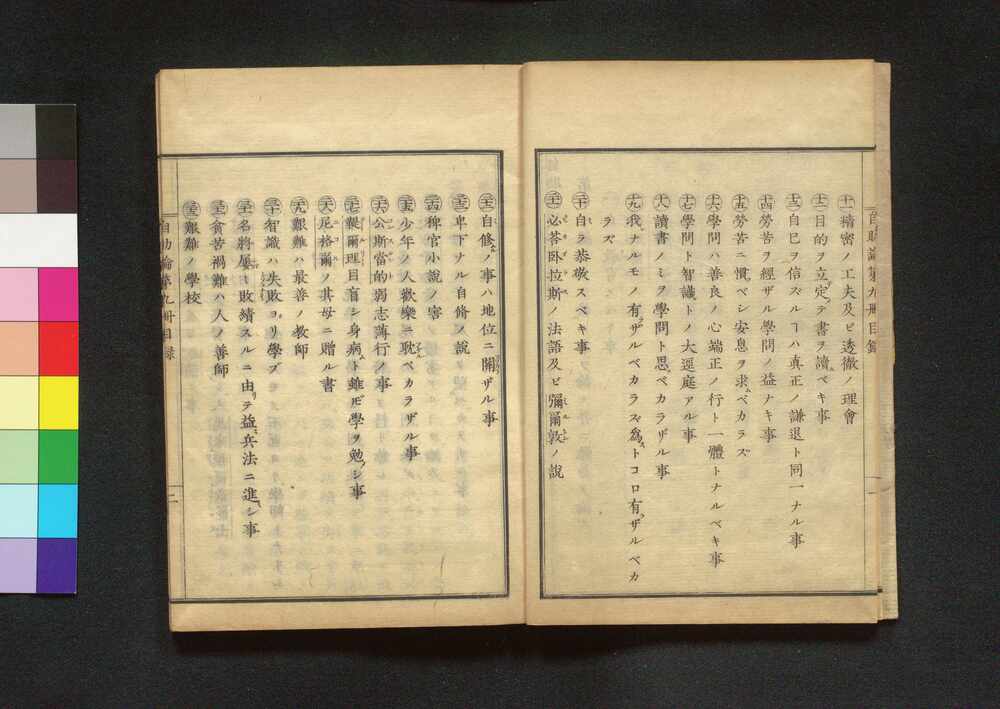 自助論第九冊目録
㊉一 精密ノ工夫及ビ透徹ノ理會
㊉二 目的ヲ立定テ書ヲ讀ムベキ事
㊉三 自己ヲ信ズルヿハ真正ノ謙退ト同一ナル事
㊉四 勞苦ヲ經ザル學問ノ益ナキ事
㊉五 勞苦ニ慣ベシ安息ヲ求ムベカラズ
㊉六 學問ハ善良ノ心端正ノ行ト一體トナルベキ事
㊉七 學問ト智識トノ大逕庭アル事
㊉八 讀書ノミヲ學問ト思ベカラザル事
㊉九 我ナルモノ有ザルベカラズ為トコロ有ザルベカ
ラズ
二十 自ラ恭敬スベキ事
二十一 必荅臥拉斯ノ法語及ビ彌爾敦ノ說
二十二 自修ノ事ハ地位ニ關ザル事
二十三 卑下ナル自修ノ說
二十四 稗官小說ノ害
二十五 少年ノ人歡樂ニ耽ベカラザル事
二十六 公斯當的弱志薄行ノ事
二十七 鞮爾理目盲シ身病ト雖𪜈學ヲ勉シ事
二十八 尼格爾ノ其母ニ贈ル書
二十九 艱難ハ最善ノ教師
三十 智識ハ失敗ヨリ學ブ
三十一 名將屢敗績スルニ由テ益兵法ニ進シ事
三十二 貪苦禍難ハ人ノ善師
三十三 艱難ノ學校
自助論第九冊目録
二